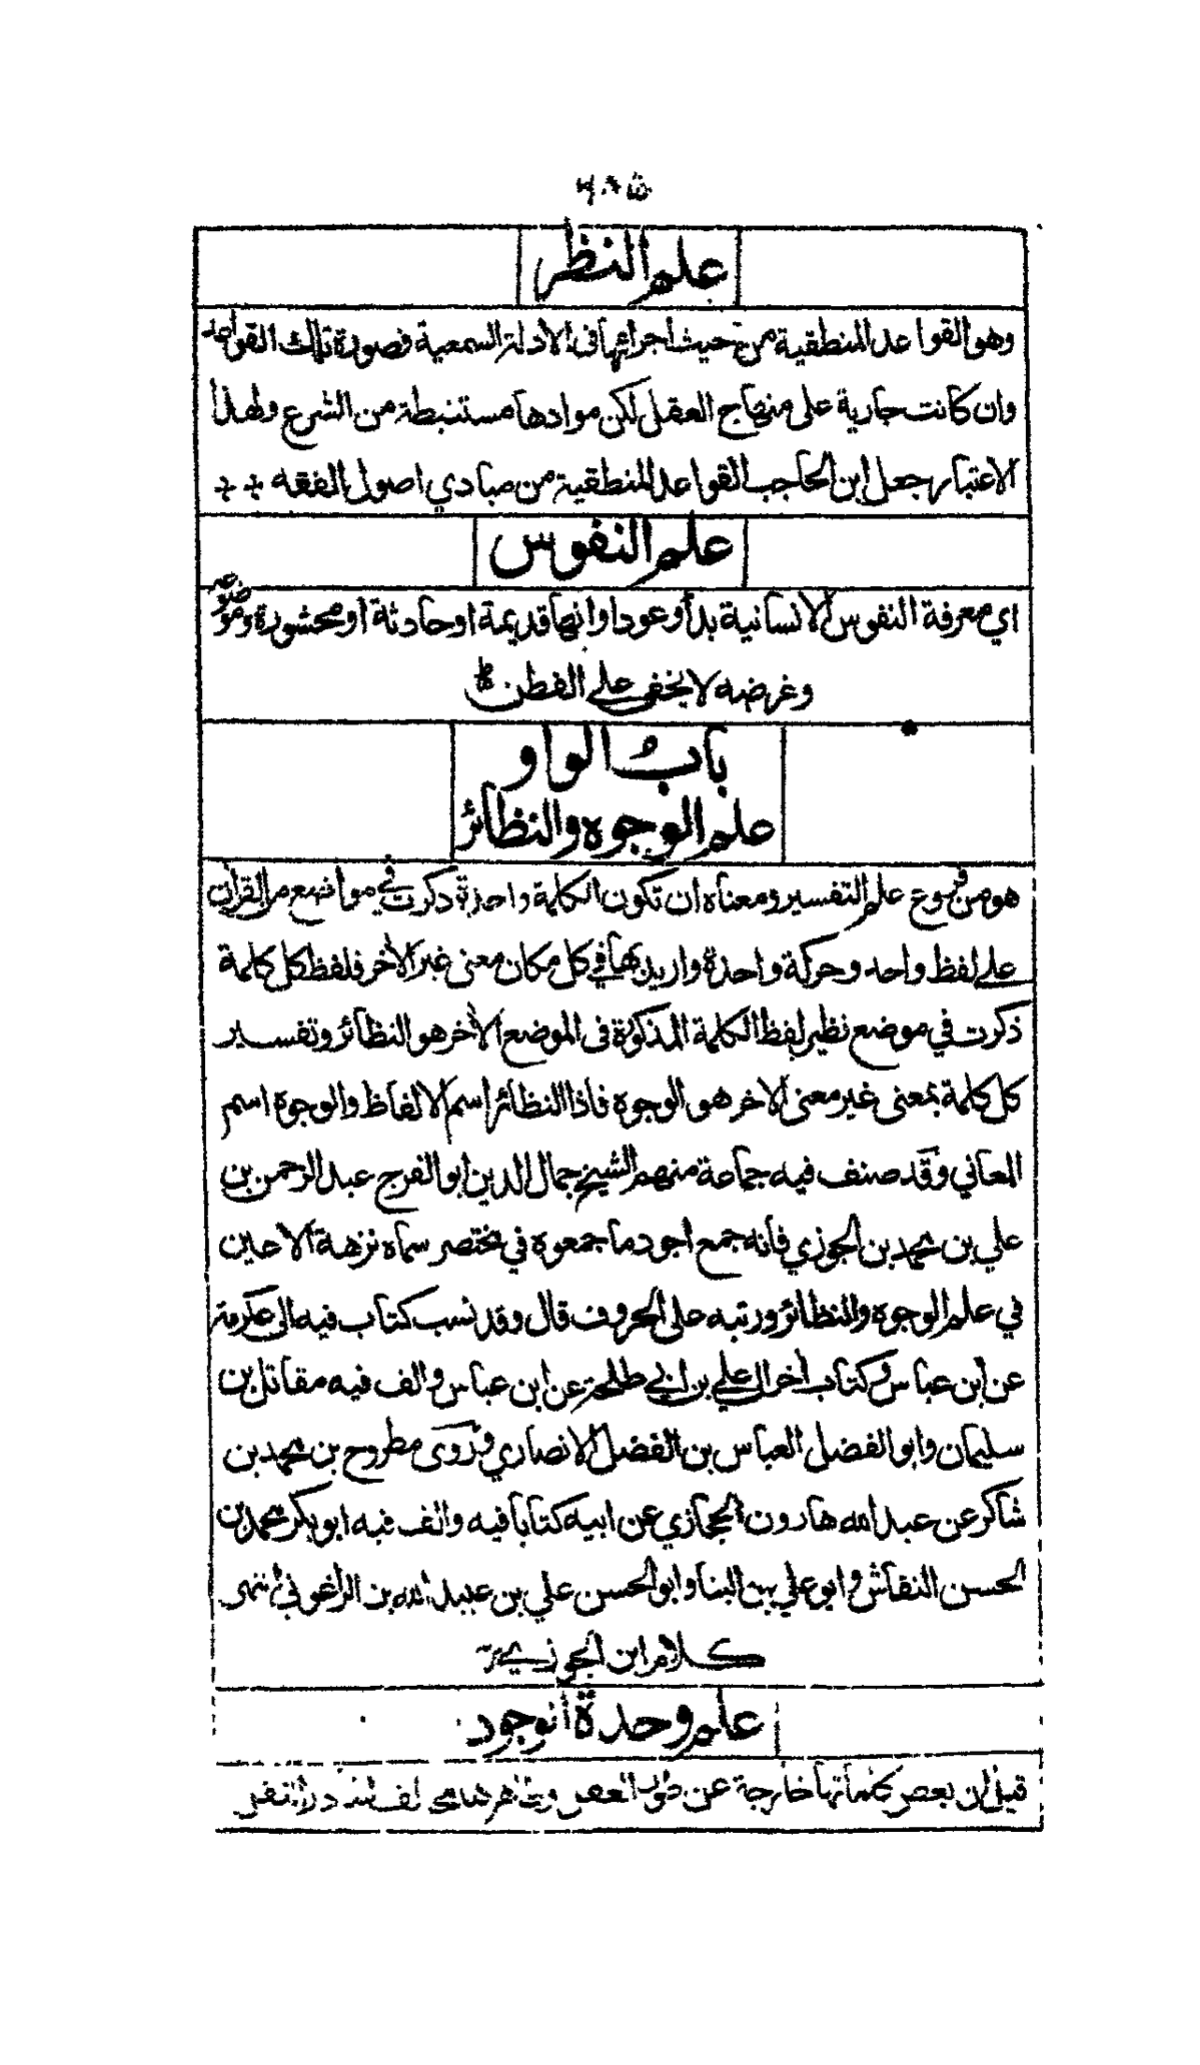 علم النظر
وهو القواعد المنطقية من حيث اجرائها في الادلة السمعية فصورة تلك القواعد
وان كانت جارية على منهاج العقل لكن موادها مستنبطة من الشرع ولهذا
الاعتبار جعل ابن الحاجب القواعد المنطقية من مبادي اصول الفقه
علم النفوس
اي معرفة النفوس الانسانية بدأ وعودا وانها قديمة او حادثة او محشورة وموضوعه
وغرضه لا يخفى على الفطن
باب الواو
علم الوجوه والنظائر
هو من فروع علم التفسير ومعناه ان تكون الكلمة واحدة ذكرت في مواضع من القران
على لفظ واحد وحركة واحدة واريد بها في كل مكان معنى غير الاخر فلفظ كل كلمة
ذكرت في موضع نظير لفظ الكلمة المذكورة فى الموضع الاخر هو النظائر وتفسير
كل كلمة بمعنى غير معنى الاخر هو الوجوه فاذا النظائر اسم الالفاظ والوجوه اسم
المعاني وقد صنف فيه جماعة منهم الشيخ جمال الدين ابو الفرج عبد الرحمن بن
علي بن محمد بن الجوزي فانه جمع اجود ما جمعوه في مختصر سماه نزهة الاعين
في علم الوجوه والنظائر ورتبه على الحروف قال وقد نسب كتاب فيه الى عكرمة
عن ابن عباس وكتاب اخر الى علي بن ابي طلحة عن ابن عباس والف فيه مقاتل بن
سليمان وابو الفضل العباس بن الفضل الانصاري وروى مطروح بن محمد بن
شاكر عن عبد الله هارون الحجازي عن ابيه كتابا فيه والف فيه ابو بكر محمد بن
الحسن النقاش وابو علي بن البنا وابو الحسن علي بن عبيد الله بن الزاغوني انتهى
كلام ابن الجوزي
علم وحدة الوجود
قيل ان بعض كلماتها خارجة عن طور العقل